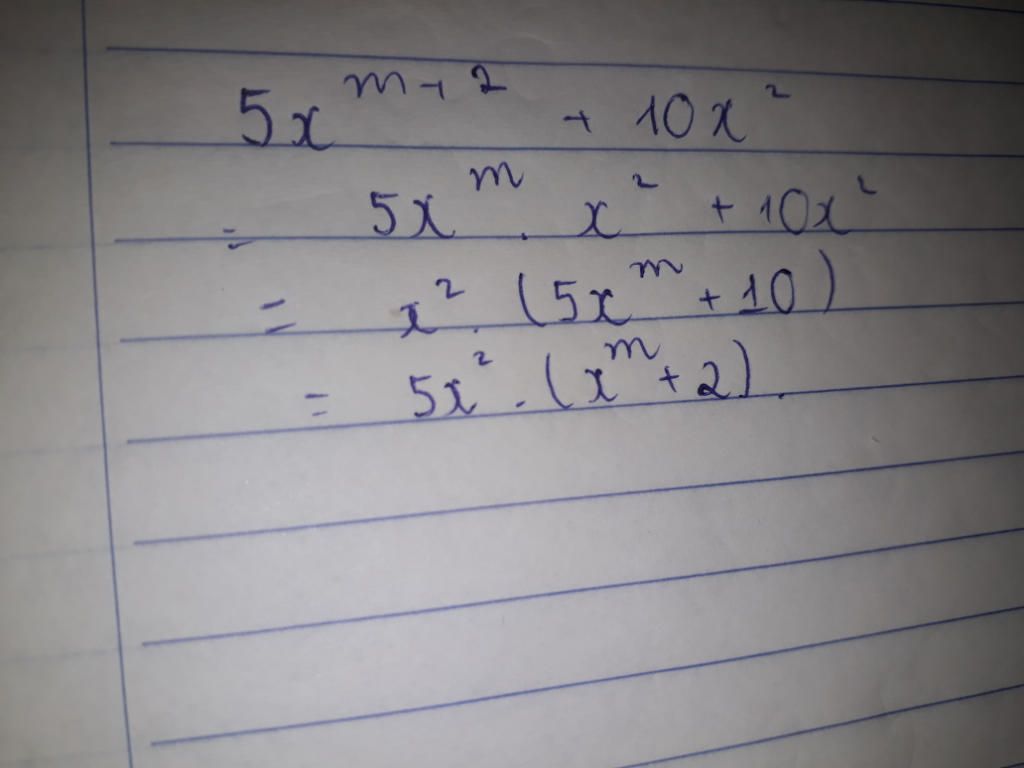 5x^{m+2} + 10x^2
= 5x^m . x^2 + 10x^2
= x^2 . (5x^m + 10)
= 5x^2 . (x^m + 2).